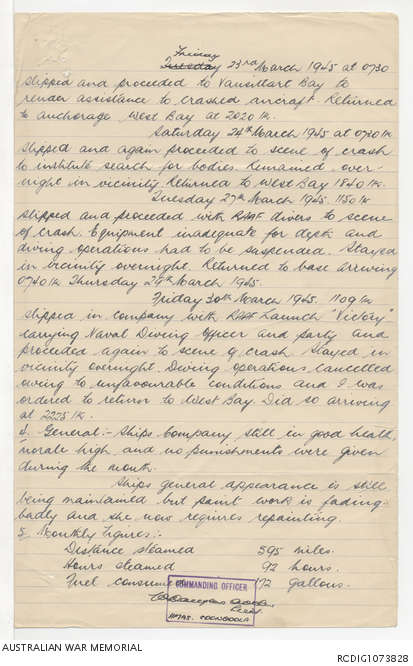 Friday
Tuesday 23rd March 1945 at 0730
slipped and proceeded to Vansittart Bay to
render assistance to crashed aircraft. Returned
to anchorage West Bay at 2020 K.
Saturday 24th March 1945 at 0740 K
slipped and again proceeded to scene of crash
to institute search for bodies. Remained over-
night in vicinity. Returned to West Bay 1840 K.
Tuesday 27th March 1945. 1150 K
slipped and proceeded with RAAF divers to scene
of crash. Equipment inadequate for depth and
diving operations had to be suspended. Stayed
in vicinity overnight. Returned to base arriving
0740 K Thursday 29th March 1945.
Friday 30th March 1945. 1109 K
slipped in company with RAAF Launch "Victory"
carrying Naval Diving Officer and party and
proceeded again to scene of crash. Stayed in
vicinity overnight. Diving operations cancelled
owing to unfavourable conditions and I was
ordered to return to West Bay. Did so arriving
at 2225 K.
4. General:- Ships Company still in good health,
morale high and no punishments were given
during the month.
Ships general appearance is still
being maintained but paint work is fading
badly and she now requires repainting.
5. Monthly Figures:-
Distance steamed 595 miles.
Hours steamed 92 hours.
Fuel consumed 172 gallons.
COMMANDING OFFICER
HMAS. COONGOOLA
AUSTRALIAN WAR MEMORIAL
RCDIG1073828